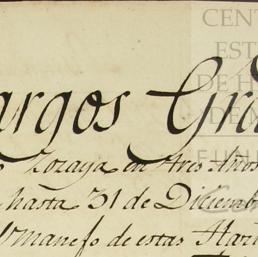 CENT
EST
DE H
DE M
FUN
argos Gra
Lozaya en tres Años
hasta 31 de Diciemb
manejo de estas Hazi